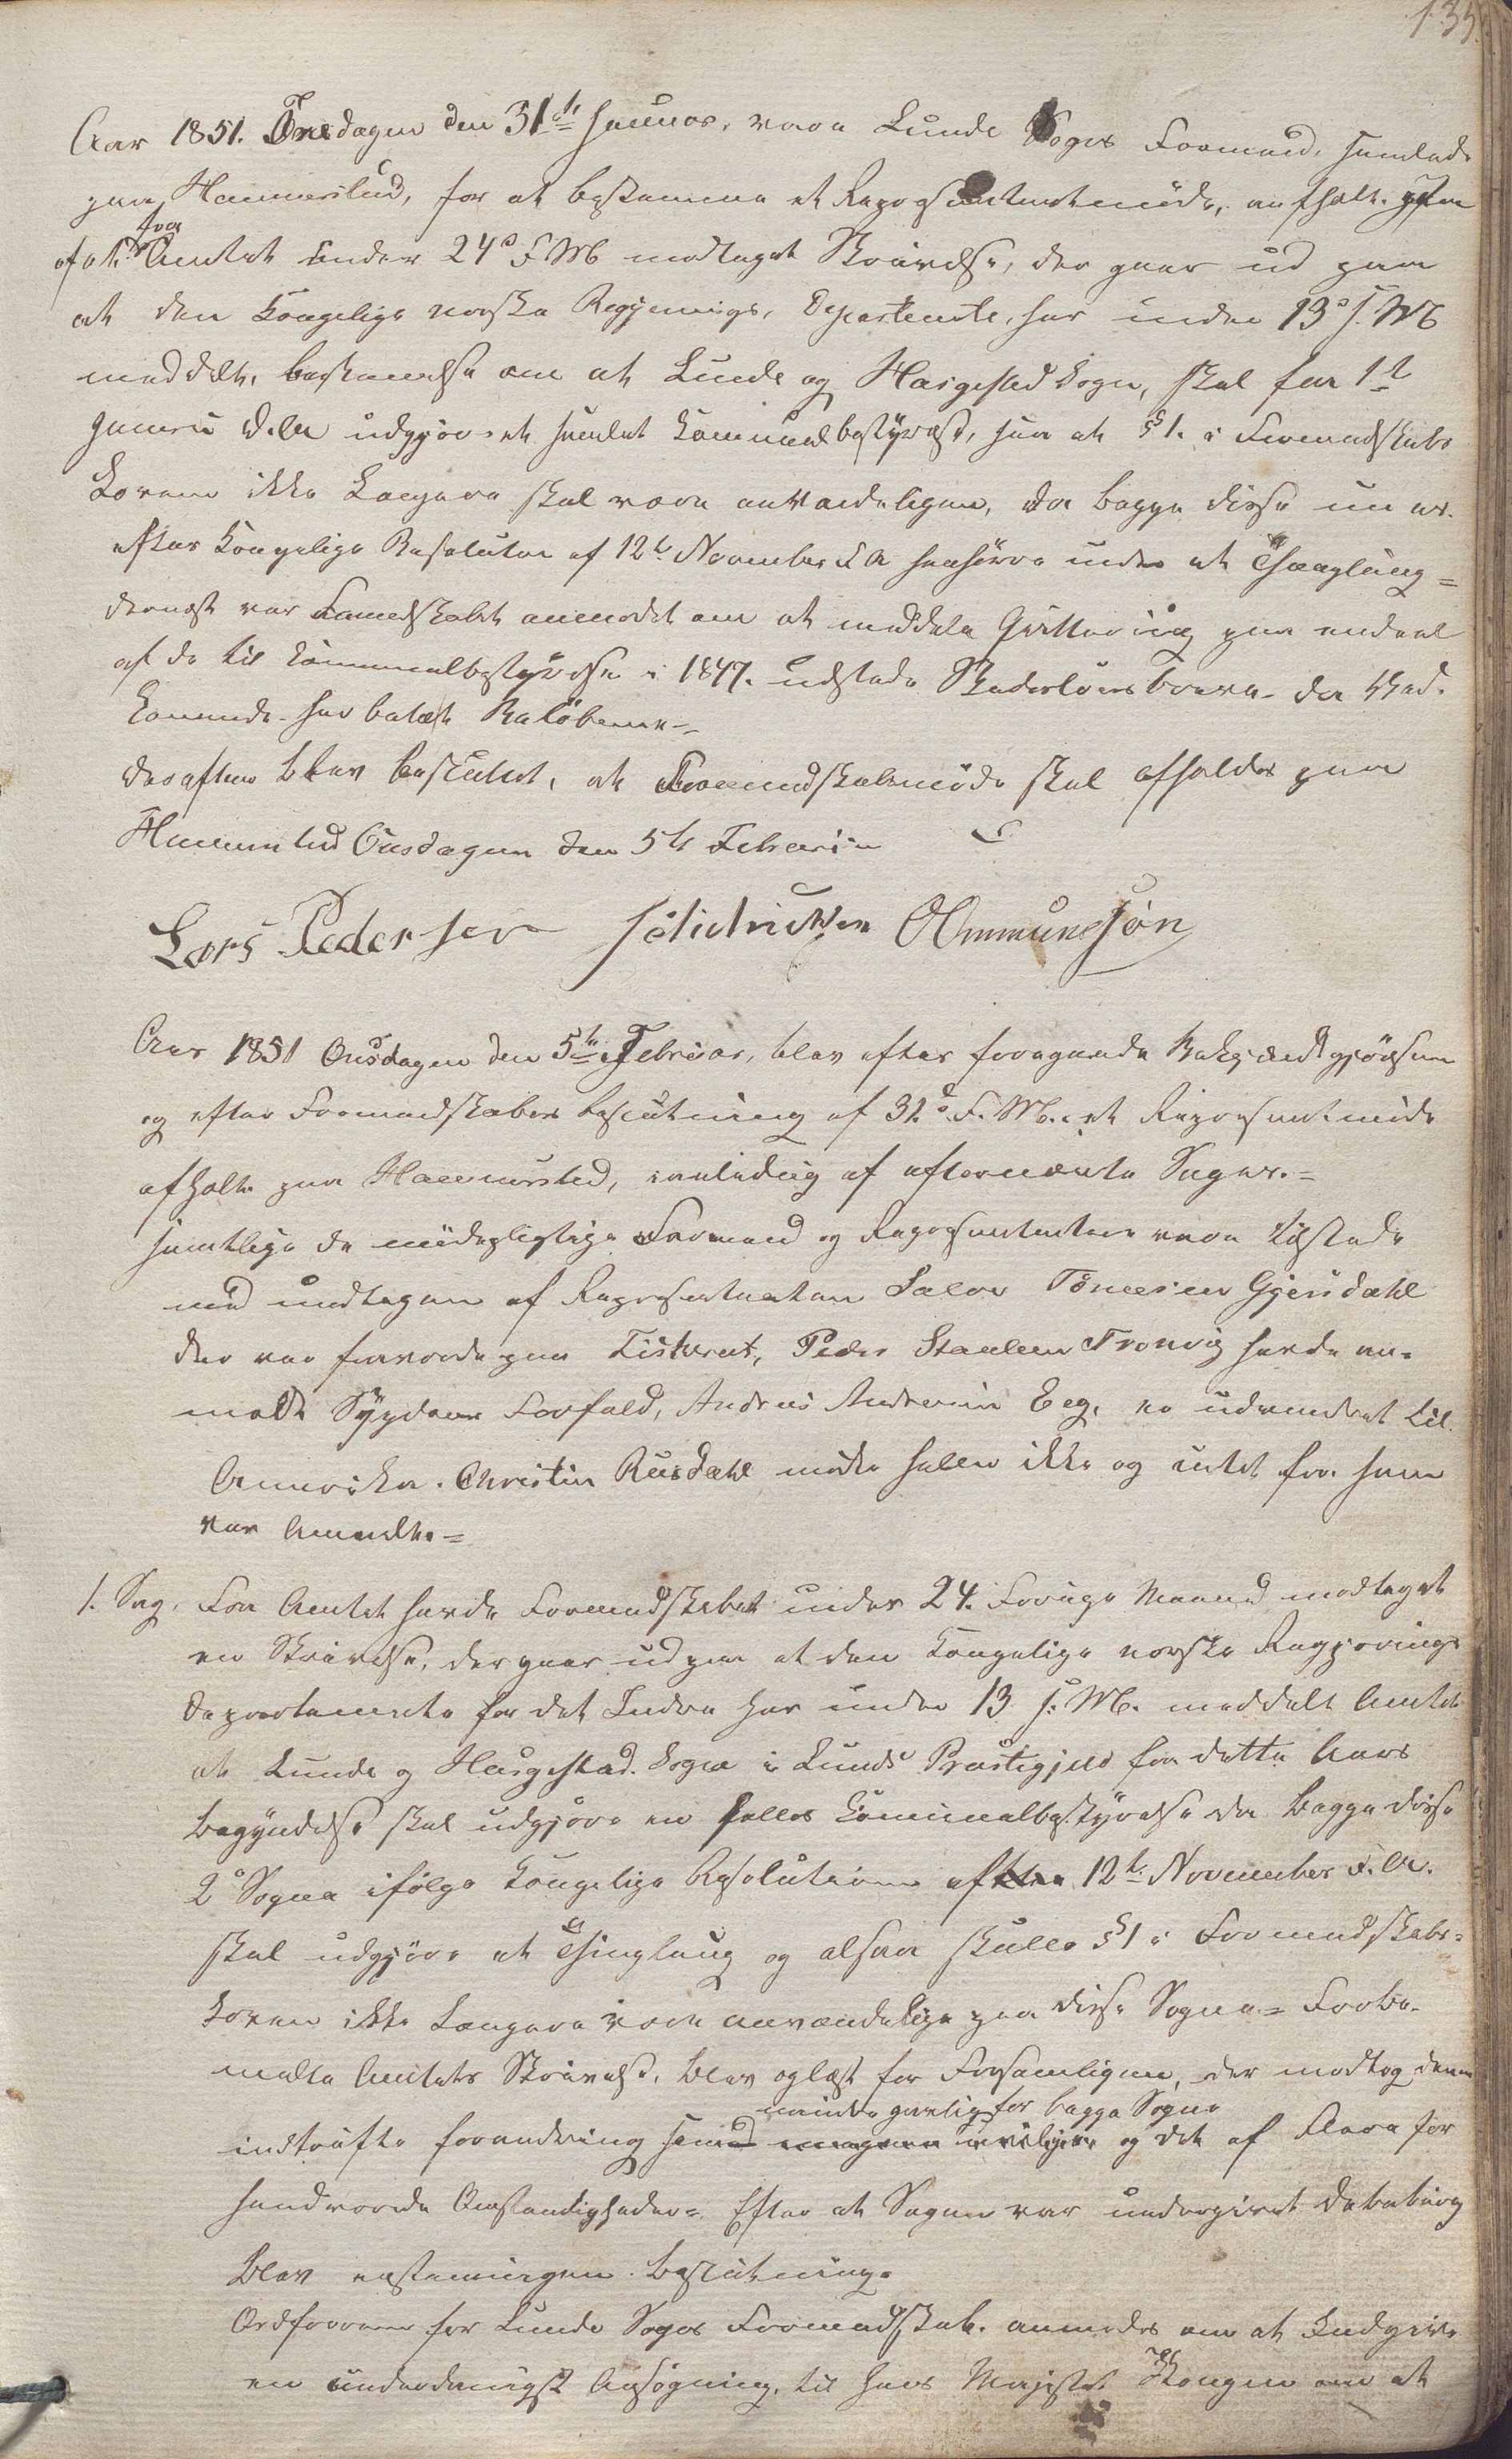 135.
Aar 1851. Onsdagen den 31te Januar, vare Lunde Sogns Formænd, samlede
paa Hammersted, for at bestemme et Repræsentantmøde, anholdt.
fra Amtet under 24de F. M. modtaget Skrivelse, der gaar ud paa
at den kongelige norske Regjerings, Departemente, har under 13de f. M.
meddelt, bestemmelse om at Lunde og Haugestad Sogn, skal fra 1te
Januari udgjøre et samlet Communalbestyrelse, saa at §1. i Formandskabs
Loven ikke Længere skal være anvendeligen, da begge disse nu er
efter Kongelige Resolution af 12te November f. A. henhøre under et Thinglaug =
dernæst var Formandskabet anmodet om at meddele Qvittering paa endeel
af de til Communalbestyrelse i 1847. udstede Skadesløsbreve. da Ved-
kommende har betalt Beløbene =
derefter blev besluttet, at Formandskabsmøde skal afholdes paa
Hammersted Onsdagen den 5te Februari
Lars Pedersen OOmmundsøn
Aar 1851 Onsdagen den 5te Februar, blev efter foregaaende Bekjendtgjørelsen
og efter Formandskabets beslutning af 31de F. M. et Repræsentantmøde
afholt paa Hammersted, i anledning af efternævnte Sager. =
samtlige de mødepligtige Formænd og Repræsentantere vare tilstede
med undtagen af Repræsentanten Salve Tønnesen Gjersdahl
der var fraværende paa Fiskeriet, Peder Staalesen Tronvig havde an-
meldt Sygdoms Forfald, Andreas Andersen Eeg, er udvandret til
Amerika. Christen Ruesdahl mødte heller ikke og intet fra ham
var Anmeldt. =
1. Sag. Fra Amtet havde Formandskabet under 24. Forrige Maaned modtaget
en Skrivelse, der gaar ud paa at den Kongelige norske Regjerings
Departemente for det Indre har under 13 f. M. meddelt Amtet
at Lunde og Haugestad. Sogne i Lunds Præstegjeld fra dette Aars
begyndelse skal udgjøre en fælles Communalbestyrelse da begge disse
2de Sogne ifølge Kongelige Resolution af 12te November f. A.
skal udgjøre et Thinglaug og alsaa skulle §1 i Formandskabs-
Loven ikke Længere være anvendelige paa disse Sogne = Forbe-
meldte Amtets Skrivelse, blev oplæst for Forsamlingen, der modtog denne
mindre gavnlig for begge Sogne
indtrufte forandring som og det af Flere for
haandværende Omstændigheder = Efter at Sagen var undergivet debatering
blev enstemmigen. beslutning.
Ordføreren for Lunde Sogns Formandskab. anmodes om at Indgive
en underdanigst Ansøgning, til Hans Majestæt Kongen om at